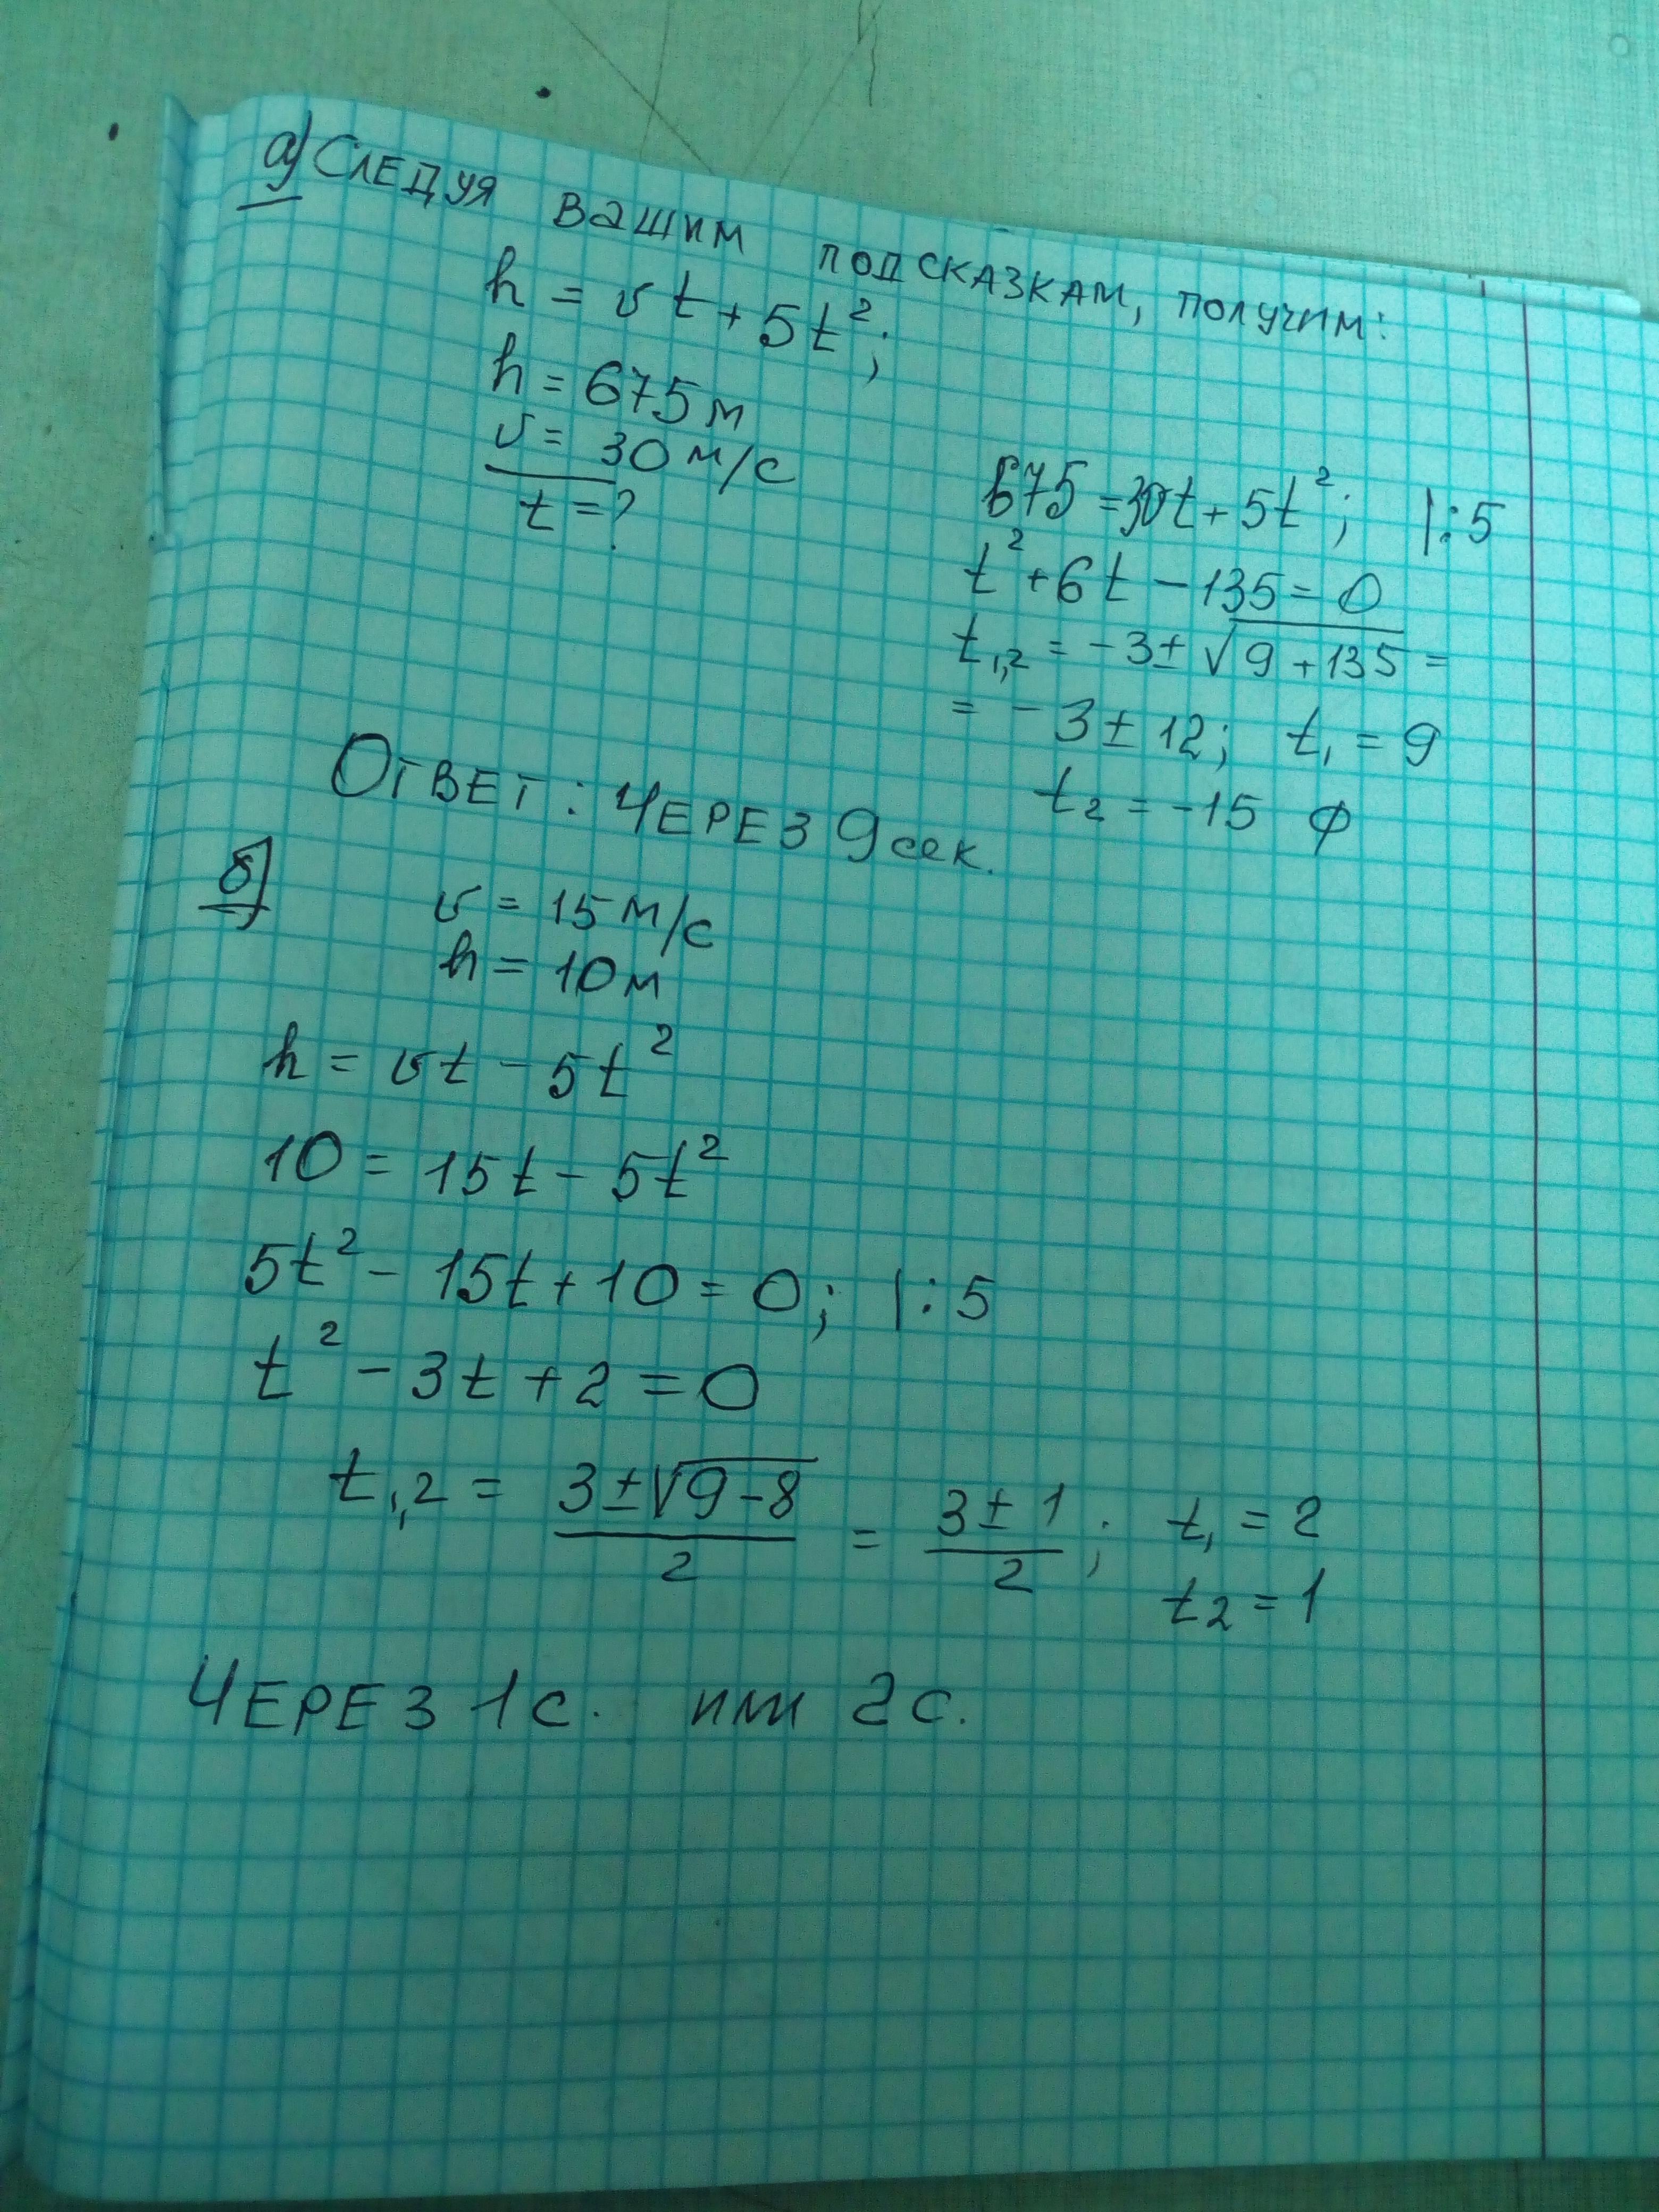 а) Следуя вашим подсказкам, получим:
h = vt + 5t²;
h = 675 м
v = 30 м/с
t = ?
675 = 30t + 5t²; |:5
t² + 6t - 135 = 0
t₁,₂ = -3 ± √9 + 135 =
= -3 ± 12; t₁ = 9
t₂ = -15 ϕ
Ответ: через 9 сек.
б) v = 15 м/с
h = 10 м
h = vt - 5t²
10 = 15t - 5t²
5t² - 15t + 10 = 0; |:5
t² - 3t + 2 = 0
t₁,₂ = (3 ± √9 - 8)/2 = (3 ± 1)/2; t₁ = 2
t₂ = 1
Через 1 с. или 2 с.